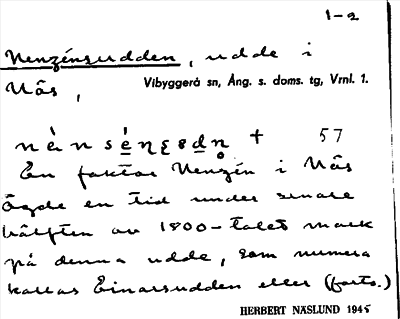 1-2
Nenzénsudden, udde i
Näs,
Vibyggerå sn, Ång. s. doms. tg, Vrnl. 1.
+ 57
En faktor Nenzén i Näs
ägde en tid under senare
hälften av 1800-talet mark
på denna udde, som numera
kallas Einarsudden eller (forts.)
HERBERT NÄSLUND 1945